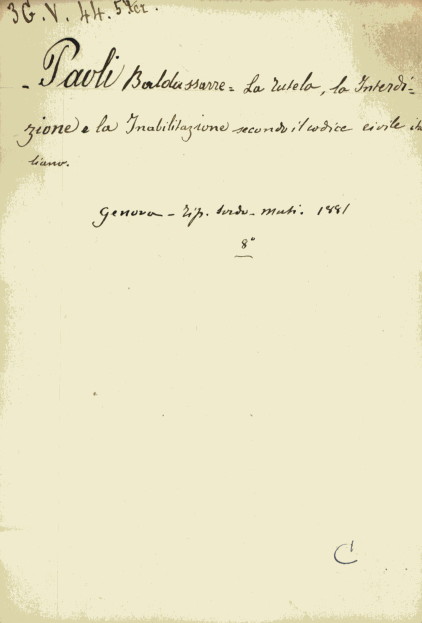 3G. V. 44. 5 ter.
- Paoli Baldassarre = La Tutela, la Interdi=
zione e la Inabilitazione secondo il codice civile ita
liano.
Genova - Tip. sordo-muti. 1881
8°
C